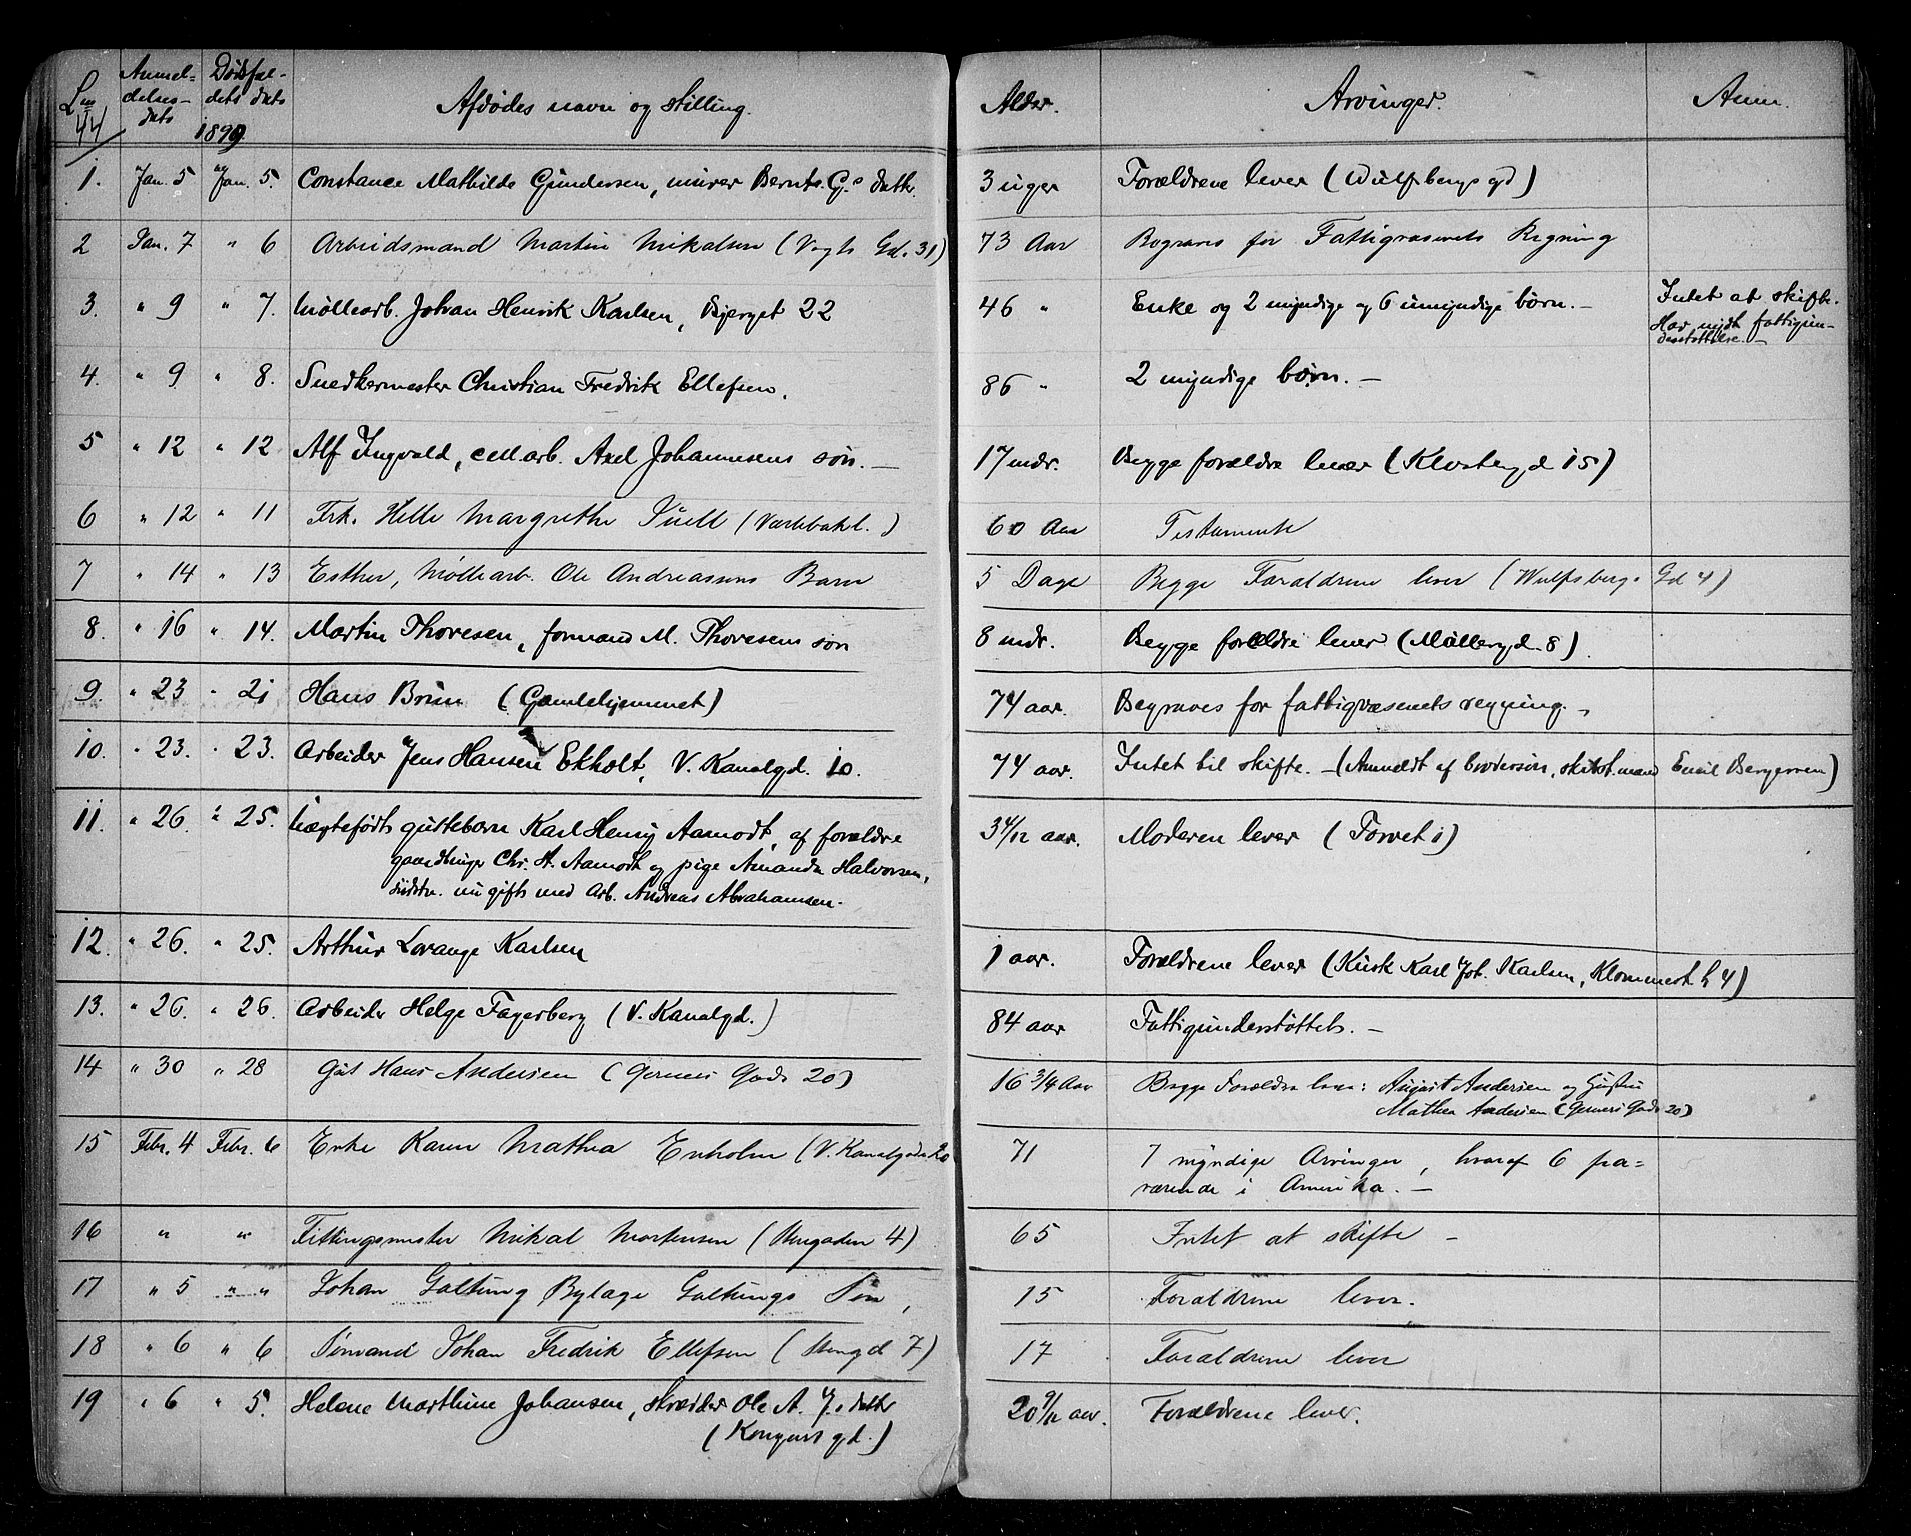 Lnr 44 Anmeldelses-dats Dødsfal-dets dats 1899. Afdødes navn og stilling. Alder. Arvinger. Anm.
1. Jan. 5 Jan. 5. Constance Mathilde Gundersen, murer Bernts G.s datter. 3 uger Forældrene lever (Wulfsbergs gd)
2 Jan. 7 " 6 Arbeidsmand Martin Mikalsen (Vogts Gd. 31) 73 Aar Begraves for Fattigvæsenets Regning
3. " 9 " 7. Møllearb. Johan Henrik Karlsen, Bjerget 22 46 " Enke og 2 myndige og 6 umyndige børn. — Intet at skifte.
Har nydt fattigun-
derstøttelse. —
4. " 9 " 8. Snedkermester Christian Fredrik Ellefsen. 86 " 2 myndige børn. —
5 " 12 " 12 Alf Ingvald, cell.arb. Axel Johannesens søn. — 17 mdr. Begge forældre lever (Klostergd 15)
6 " 12 " 11 Frk. Helle Margrethe (Værlebakk.) 60 Aar Testamente
7 " 14 " 13 Esther, Møllearb. Ole Andreassens Barn 5 Dage Begge Forældrene lever (Wulfsbergs Gd 4)
8. " 16 " 14. Martin Thoresen, formand M. Thoresens søn 8 mdr. Begge forældre lever (Møllergd. 8)
9. " 23 " 21 Hans Brun (Gamlehjemmet) 74 aar. Begraves for fattigvæsenets regning. -
10. " 23. " 23. Arbeider Jens Hansen Ekholt, V. Kanalgd. 10. 74 aar. Intet til skifte. — (Anmeldt af brodersøn, skibst.mand Emil Bergersen)
11. " 26. " 25. Uægtefødt guttebarn Karl Henry Aamodt, af forældre 3 4/12 aar. Moderen lever (Torvet 1)
gaardbruger Chr. A. Aamodt og pige Amanda Halvorsen,
sidstn. nu gift med Arb. Andreas Abrahamsen.
12. " 26. " 25. Arthur Lorange Karlsen 1 aar. Forældrene lever (Kusk Karl Joh. Karlsen, Klommest. h 4)
13. " 26. " 26. Arbeider Helge Fagerberg (V. Kanalgd.) 84 aar Fattigunderstøttet. —
14 " 30 " 28 Gut Hans Andersen (Gerners Gade 20) 16 3/4 Aar Begge Forældre lever: August Andersen og Hustru
Mathea Andersen (Gerners Gade 20)
15 Febr. 4 Febr. 6 Enke Karen Mathea Enholm (V. Kanalgade 20 71 7 myndige Arvinger, hvoraf 6 fra-
værende i Amerika. —
16 " " Fittingsmester Mikal Mortensen (Stengaden 4) 65 Intet at skifte —
17 " 5 " " Johan Galtung Bylæge Galtungs Søn, 15 Forældrene lever.
18 " 6 " 6 Sømand Johan Fredrik Ellefsen (Stengd 7) 17 Forældrene lever
19 " 6 " 5. Helene Marthine Johansen, Skrædder Ole A. J.s datter 20 9/12 aar. Forældrene lever.
(Kongens gd.)